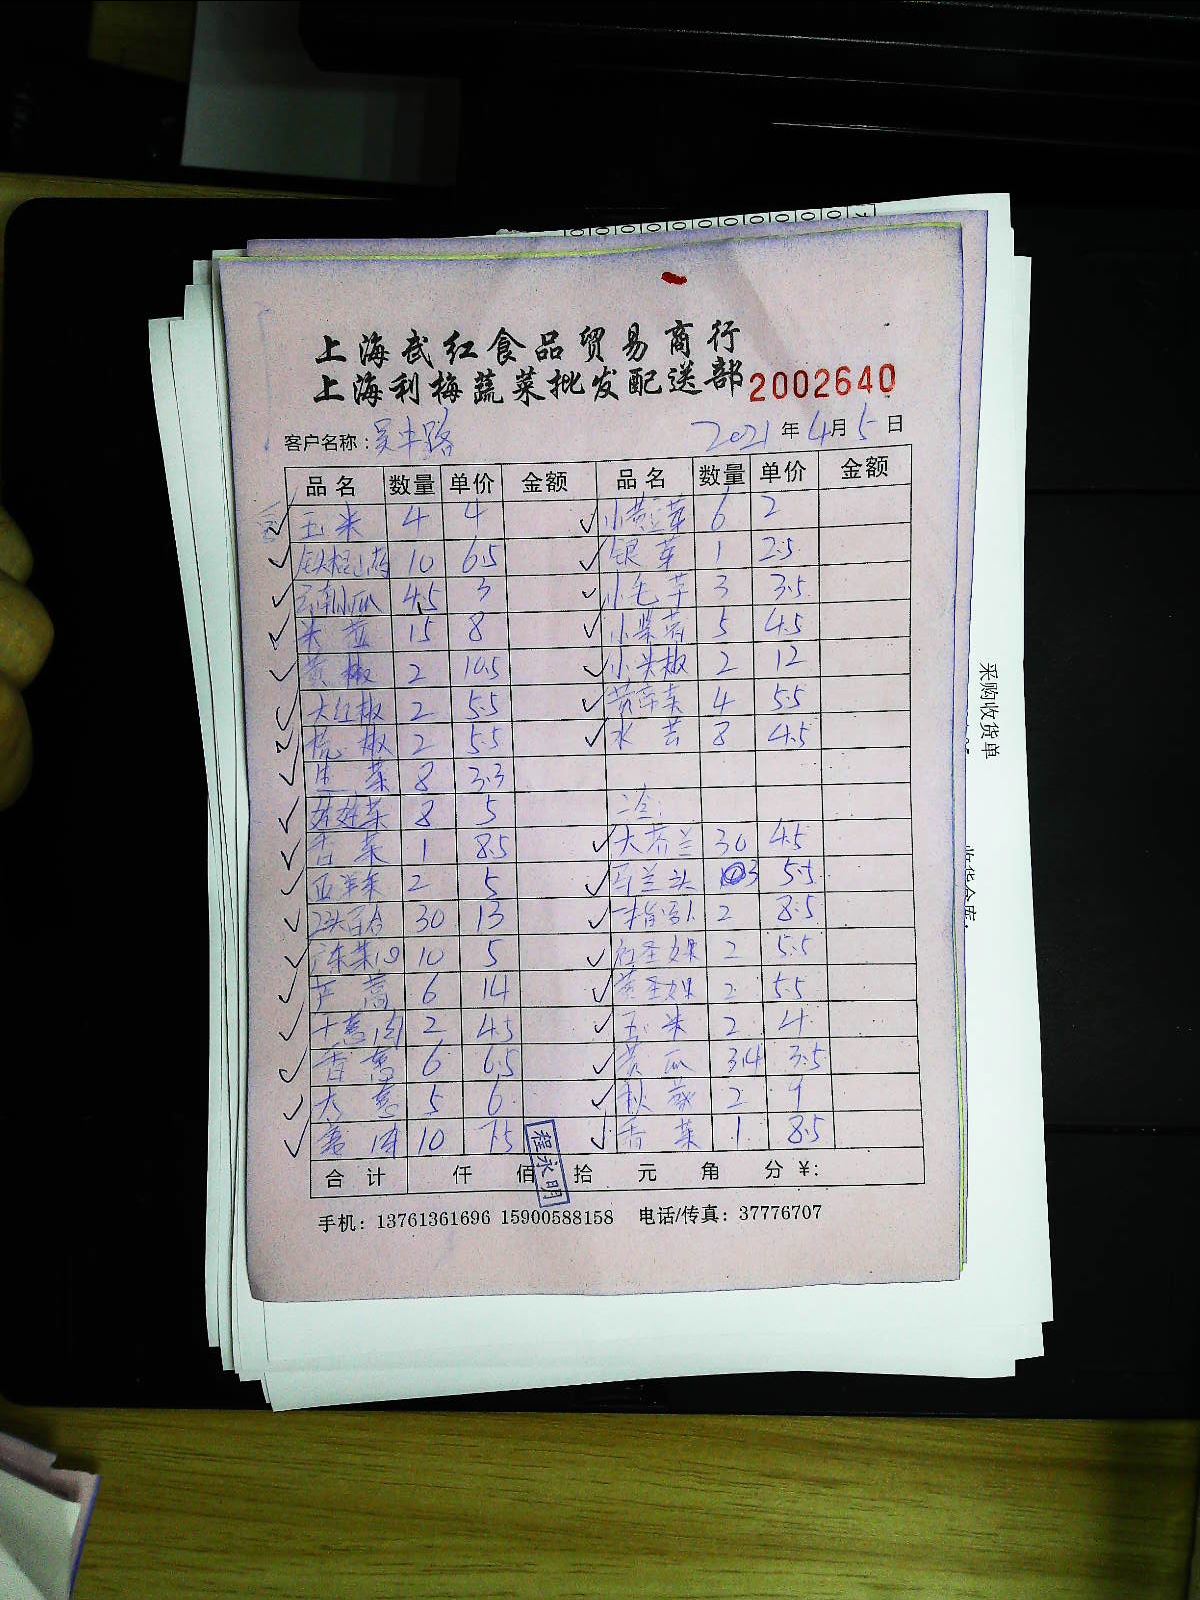 上海武红食品贸易商行
上海利梅蔬菜批发配送部 2002640
客户名称: 吴丰路 2021 年 4 月 5 日
品名 数量 单价 金额 品名 数量 单价 金额
玉米 4 4 小黄豆芽 6 2
铁棍山药 10 6.5 银芽 1 2.5
云南小瓜 4.5 3 小毛芋 3 3.5
米苋 15 8 小紫茄 5 4.5
黄椒 2 10.5 小尖椒 2 12
大红椒 2 5.5 4 5.5
椒 2 5.5 水芸 8 4.5
生菜 8 3.3
娃娃菜 8 5 二仓:
香菜 1 8.5 大芥兰 30 4.5
西洋菜 2 5 马兰头 3 5.5
2头百合 30 13 2 8.5
广东菜心 10 5 红圣女果 2 5.5
芦蒿 6 14 黄圣女果 2 5.5
干葱肉 2 4.5 玉米 2 4
香葱 6 6.5 黄瓜 34 3.5
大葱 5 6 秋葵 2 9
姜肉 10 7.5 香菜 1 8.5
合计 仟 佰 拾 元 角 分 ¥:
程永明
手机: 13761361696 15900588158 电话/传真: 37776707
采购收货单
收货仓库: